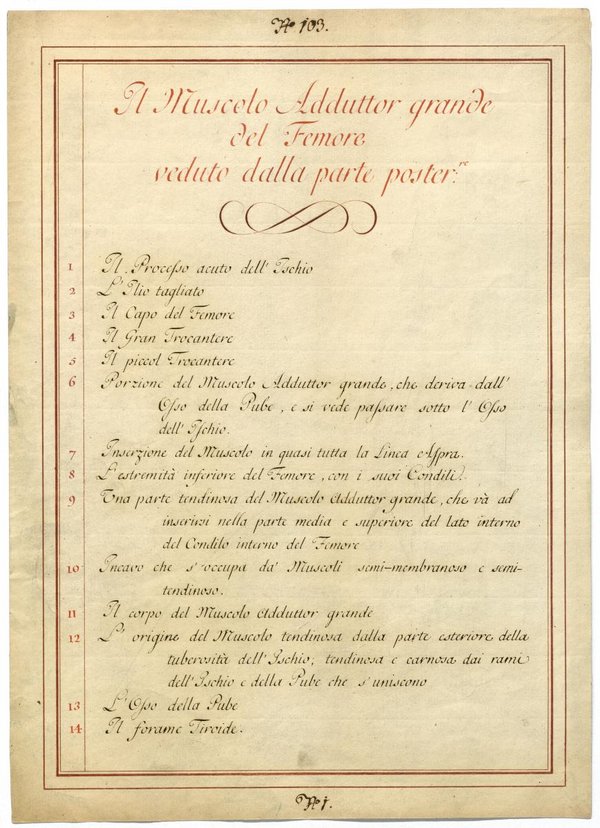 No 103.
Il Muscolo Adduttor grande
del Femore
veduto dalla parte poster.re
1 Il Processo acuto dell' Ischio
2 L' Ilio tagliato
3 Il Capo del Femore
4 Il Gran Trocantere
5 Il piccol Trocantere
6 Porzione del Muscolo Adduttor grande, che deriva dall'
Osso della Pube, e si vede passare sotto l' Osso
dell' Ischio.
7 Inserzione del Muscolo in quasi tutta la Linea Aspra.
8 L' estremità inferiore del Femore, con i suoi Condili.
9 Una parte tendinosa del Muscolo Adduttor grande, che và ad
inserirsi nella parte media e superiore del lato interno
del Condilo interno del Femore
10 Incavo che s' occupa da' Muscoli semi-membranoso e semi-
tendinoso.
11 Il corpo del Muscolo Adduttor grande
12 L' origine del Muscolo tendinosa dalla parte esteriore della
tuberosità dell' Ischio; tendinosa e carnosa dai rami
dell' Ischio e della Pube che s' uniscono
13 L' Osso della Pube
14 Il forame Tiroide.
No 1.